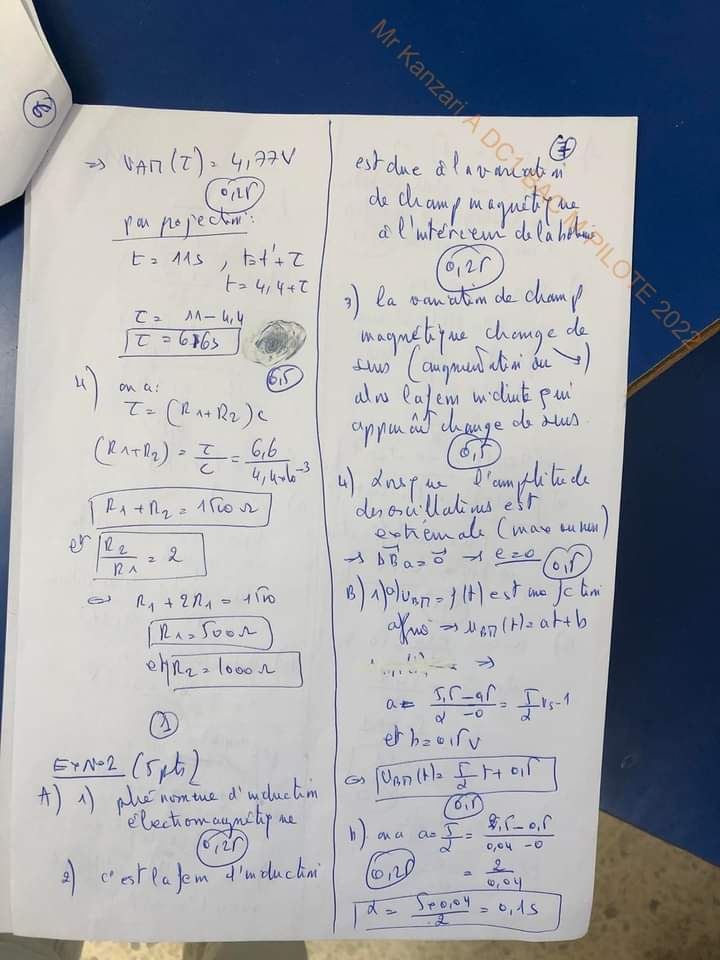 ⑧
⇒ U_AM(τ) = 4,77V
0,25
par projection:
t = 11s , t = t' + τ
t = 4,4 + τ
τ = 11 - 4,4
τ = 6,6s
0,5
4) on a:
τ = (R1+R2) C
(R1+R2) = τ/C = 6,6/4,4×10^-3
R1 + R2 = 1500 Ω
et R2/R1 = 2
⇔ R1 + 2R1 = 1500
R1 = 500 Ω
et R2 = 1000 Ω
①
Ex N°2 (5 pts)
A) 1) phénomène d'induction
électromagnétique
0,25
2) c'est la fem d'induction
⑦
est due à la variation
de champ magnétique
à l'intérieur de la bobine
0,25
3) la variation de champ
magnétique change de
sens (augmentation ou ↘)
alors la fem induite qui
apparaît change de sens.
0,5
4) Lorsque l'amplitude
des oscillations est
extrémale (max ou min)
→ ΔBa = 0 → e=0 0,5
B) 1) a) U_BM = f(t) est une fction
affine ⇒ U_BM(t) = at + b
⇒
a = 5,5 - 0,5/α - 0 = 5/α Vs-1
et b = 0,5 V
⇔ U_BM(t) = 5/α t + 0,5
0,5
b) on a a = 5/α = 2,5 - 0,5/0,04 - 0
0,25 = 2/0,04
α = 5×0,04/2 = 0,1s
Mr Kanzari A DC1 BAC M PILOTE 2022